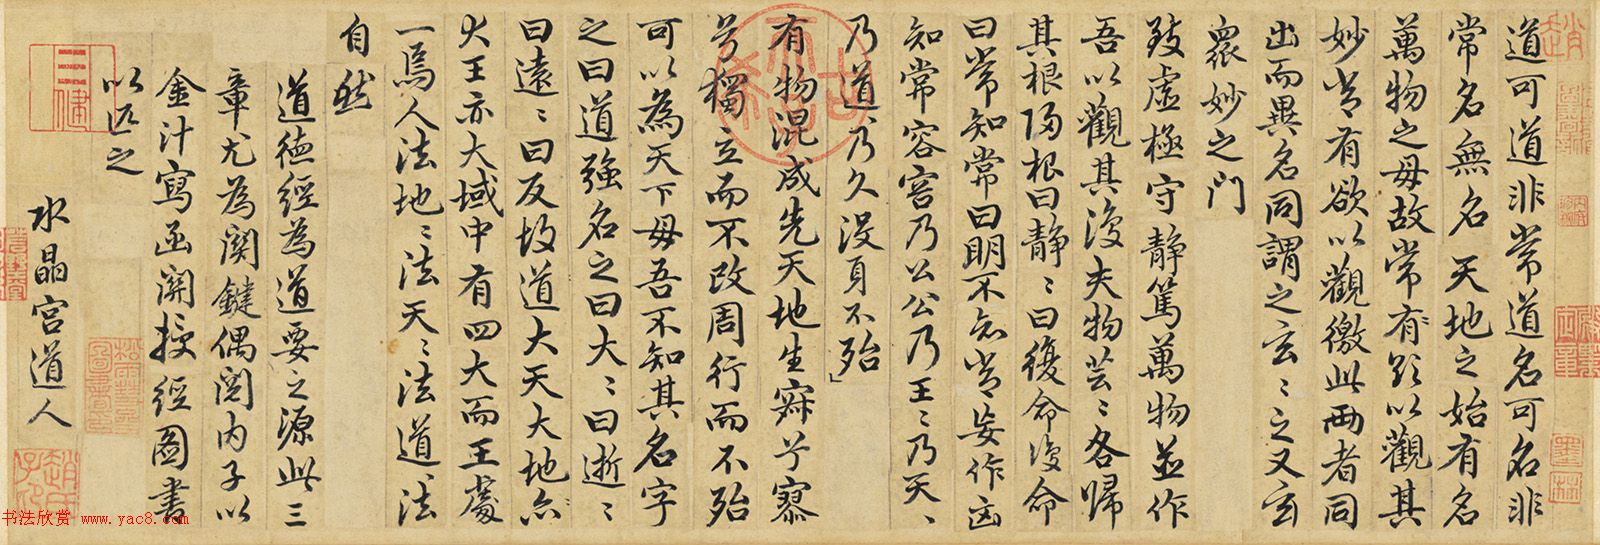 道可道非常道名可名非
常名無名天地之始有名
萬物之母故常有欲以觀其
妙常有欲以觀徼此兩者同
出而異名同謂之玄〻之又玄
衆妙之門
致虛極守靜篤萬物並作
吾以觀其復夫物芸〻各歸
其根歸根曰靜〻曰復命復命
曰常知常曰明不知常妄作凶
知常容容乃公公乃王〻乃天〻
乃道〻乃久沒身不殆
有物混成先天地生寂兮寥
兮獨立而不改周行而不殆
可以為天下母吾不知其名字
之曰道強名之曰大〻曰逝〻
曰遠〻曰反故道大天大地亦
大王亦大域中有四大而王處
一焉人法地〻法天〻法道〻法
自然
道德經為道要之源此三
章尤為関鍵偶閱內子以
金汁寫函關授經圖書
以匹之
水晶宮道人
书法欣赏 www.yac8.com